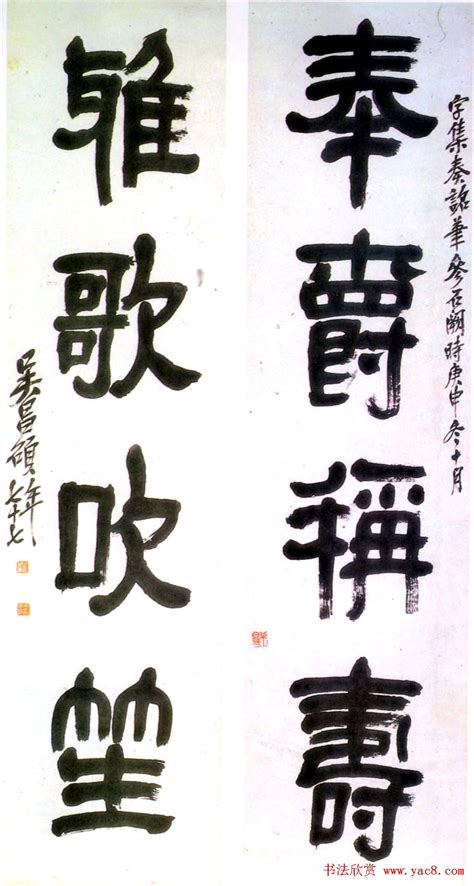 字集參石闕時庚申冬十月
奉爵稱壽
雅歌吹笙
吳昌碩年七十七
书法欣赏 www.yac8.com